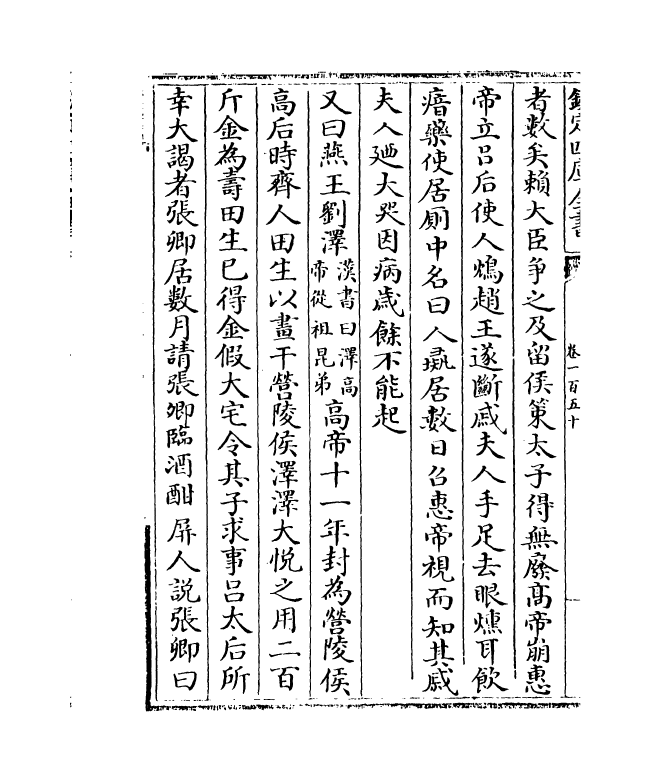 欽定四庫全書
卷一百五十
者數矣賴大臣争之及留侯策太子得無廢髙帝崩惠
帝立吕后使人鴆趙王遂斷戚夫人手足去眼燻耳飲
瘖藥使居厠中名曰人彘居數日召惠帝視而知其戚
夫人廼大哭因病歳餘不能起
又曰燕王劉澤漢書曰澤髙帝從祖昆弟高帝十一年封為營陵侯
高后時齊人田生以畫干營陵侯澤澤大悦之用二百
斤金為壽田生已得金假大宅令其子求事吕太后所
幸大謁者張卿居數月請張卿臨酒酣屏人説張卿曰